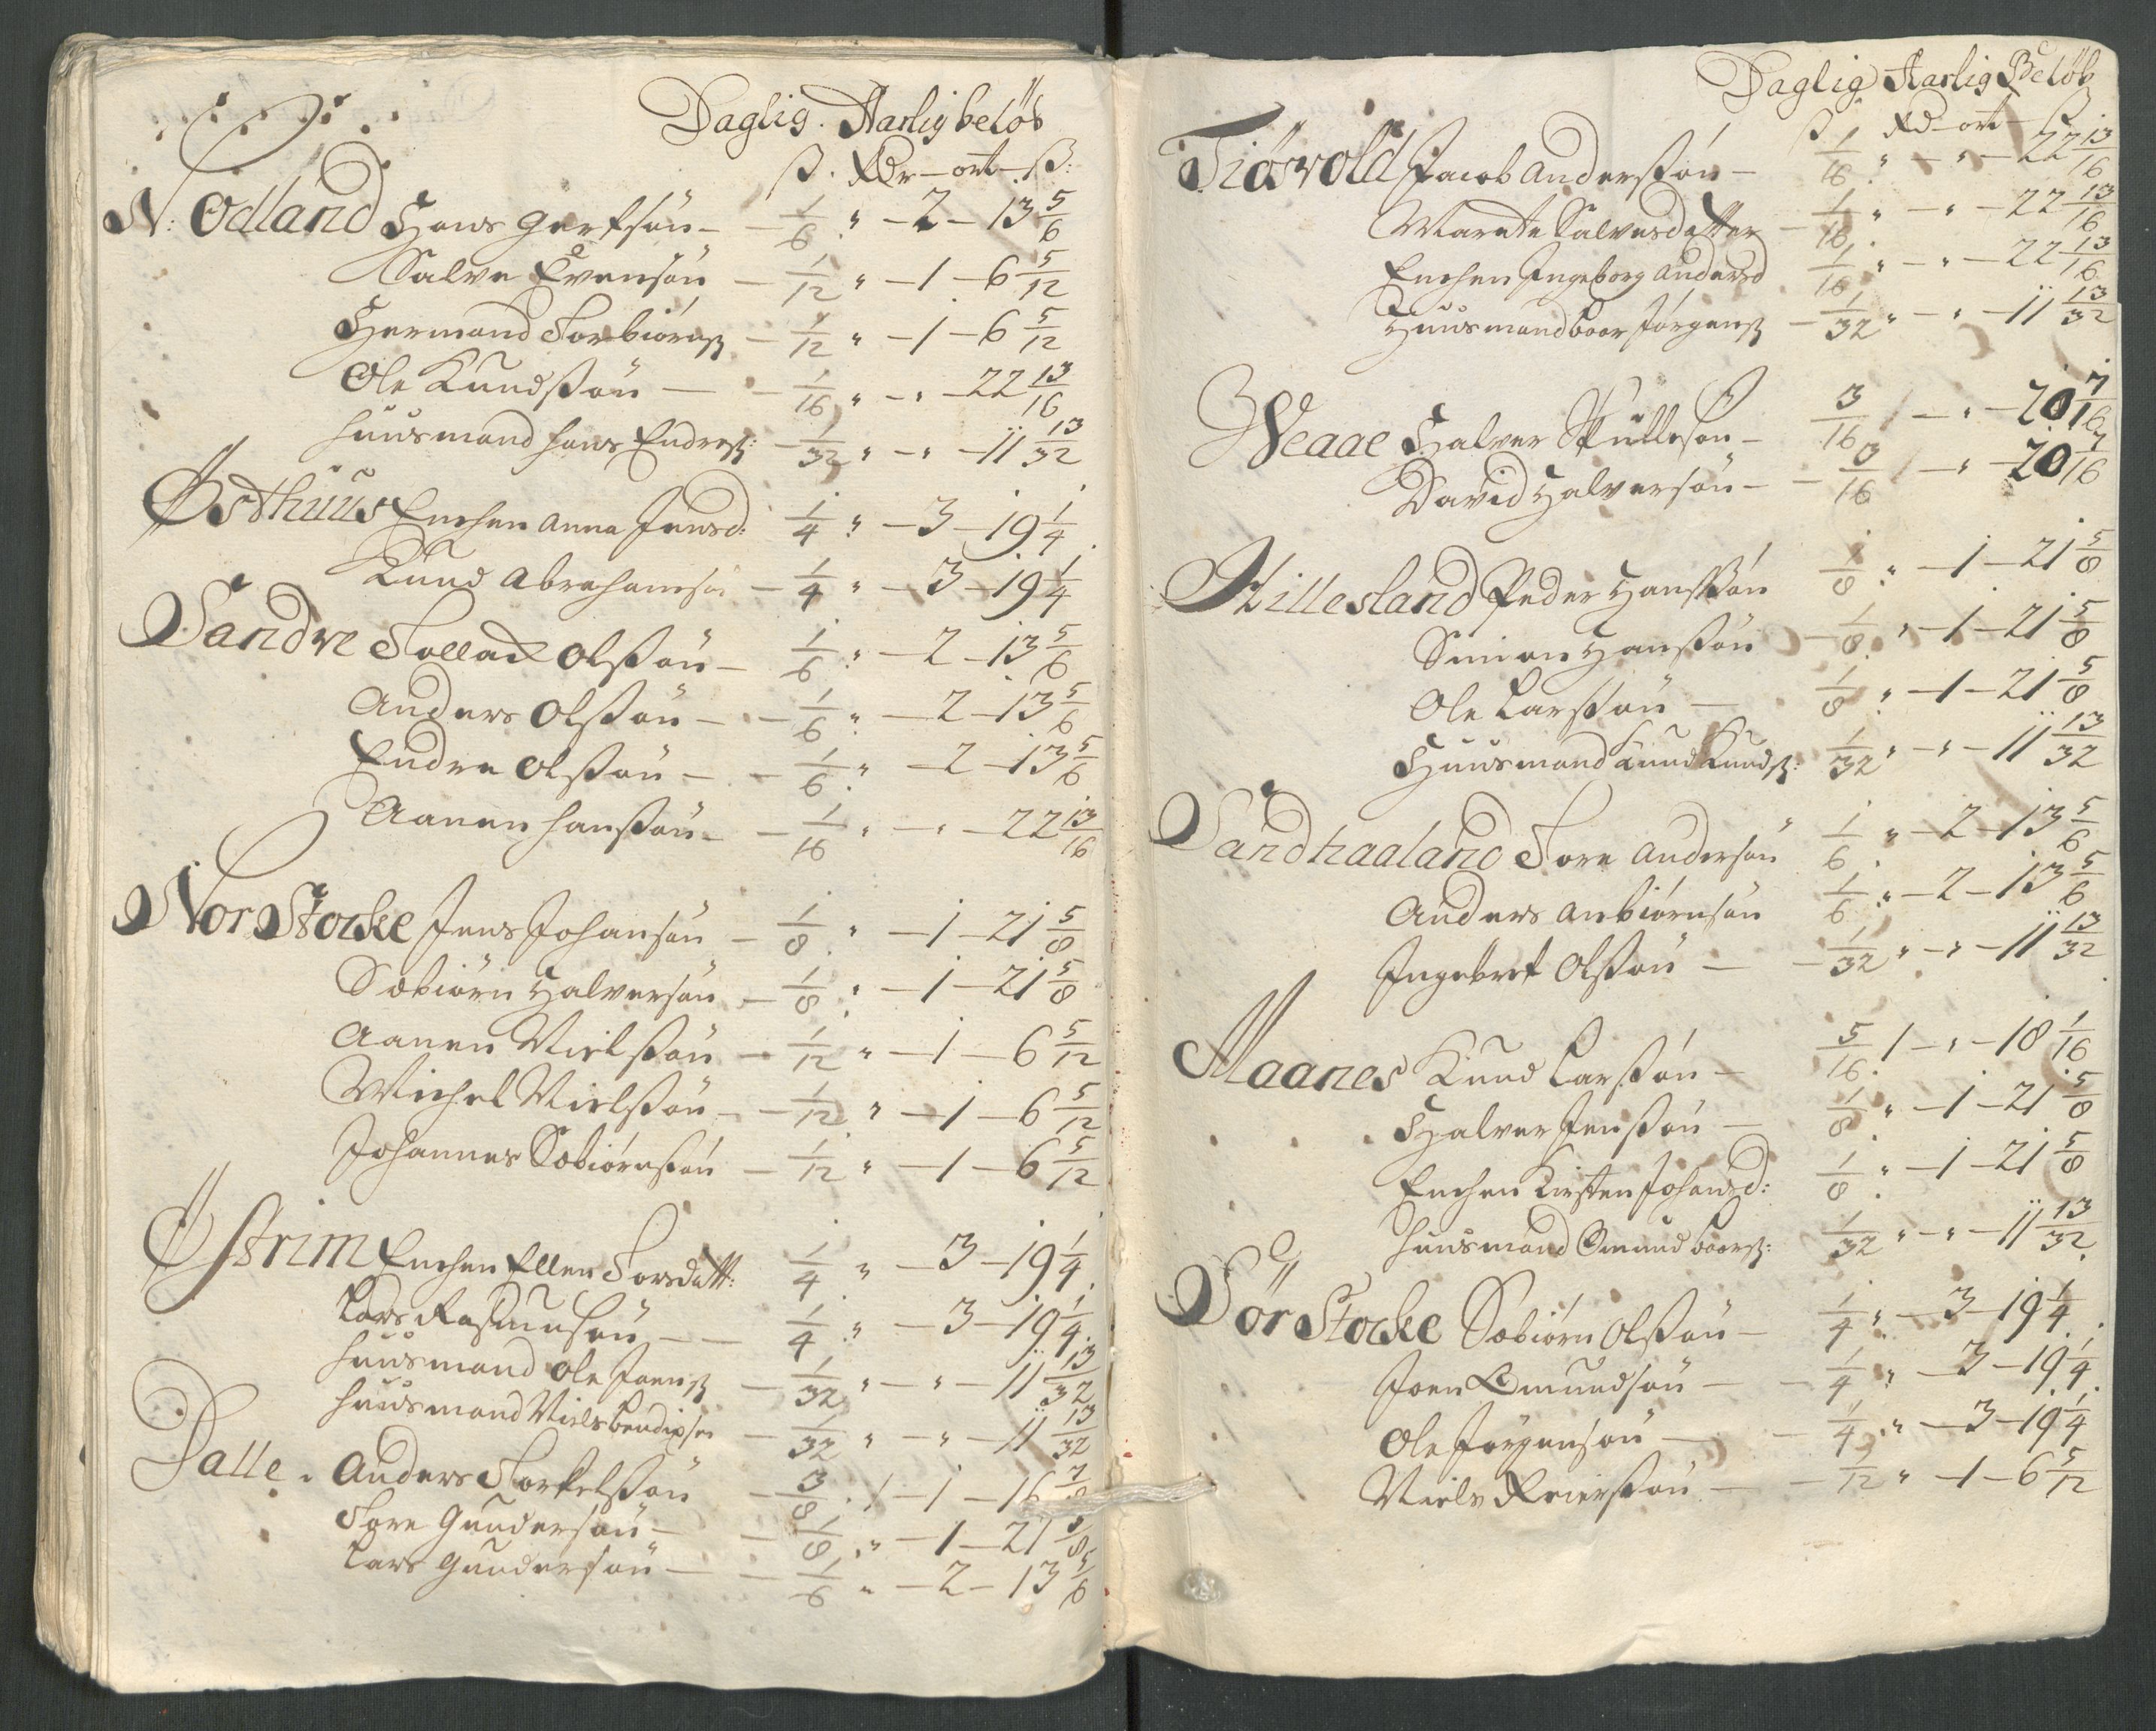 Daglig. Aarlig beløb
ß. Rdr - ort - ß:
N: Odland Hans Gertsön - 1/6 " - 2 - 13 5/6
Salve Evensön - 1/12 " - 1 - 6 5/12
Hermand Torbiörnß - 1/12 " - 1 - 6 5/12
Ole Knudßön - 1/16 " - " - 22 13/16
huusmand hans Endreß: - 1/32 " - " - 11 13/32
Østhuus Enchen Anna Jensd: 1/4 " - 3 - 19 1/4
Knud Abrahamsön - 1/4 " - 3 - 19 1/4
Sandve Tollac Olßön - 1/6 " - 2 - 13 5/6
Anders Olßön - 1/6 " - 2 - 13 5/6
Endre Olßön - 1/6 " - 2 - 13 5/6
Aanen hanßön - 1/16 " - " - 22 13/16
Nor Stocke Jens Johansön - 1/8 " - 1 - 21 5/8
Sæbiörn Halversön - 1/8 " - 1 - 21 5/8
Aanen Nielßön - 1/12 " - 1 - 6 5/12
Michel Nielßön - 1/12 " - 1 - 6 5/12
Johannes Sæbiörnßön - 1/12 " - 1 - 6 5/12
Østrim Enchen Ellen Torsdatt: 1/4 " - 3 - 19 1/4
Lars Rasmusßön - 1/4 " - 3 - 19 1/4
huusmand Ole Joenß - 1/32 " - " - 11 13/32
huusmand Niels bendixsen - 1/32 " - " - 11 13/32
Dalle. Anders Torkelßön - 3/8 . 1 - 1 - 16 7/8
Tore Gundersön - 1/8 " - 1 - 21 5/8
Lars Gundersön - 1/6 " - 2 - 13 5/6
Daglig Aarlig Beløb
ß Rd - ort - ß
Tiösvold Jacob Anderßön - 1/16 " - " - 22 13/16
Marete Salvesdatter - 1/16 " - " - 22 13/16
Enchen Ingeborg Andersd 1/16 " - " - 22 13/16
Huusmand boor Jörgenß - 1/32 " - " - 11 13/32
Weaae Halver Skulleson - 3/16 1 - " - 20 7/16
David Halversön - 3/16 1 - " - 20 7/16
Hillesland Peder Hansßön 1/8 " - 1 - 21 5/8
Simon Hanßön - 1/8 " - 1 - 21 5/8
Ole Larßön - 1/8 " - 1 - 21 5/8
Huusmand Knud Knudß: 1/32 " - " - 11 13/32
Sandhaaland Tore Andersön 1/6 " - 2 - 13 5/6
Anders Anbiörnsön 1/6 " - 2 - 13 5/6
Ingebret Olßön - 1/32 " - " - 11 13/32
Maanes Knud Larßön - 5/16 1 - " - 18 1/16
Halver Jenßön - 1/8 " - 1 - 21 5/8
Enchen Kirsten Johansd: 1/8 " - 1 - 21 5/8
huusmand Omund boorß: 1/32 " - " - 11 13/32
Sör Stocke Sæbiörn Olßön - 1/4 " - 3 - 19 1/4
Joen Omundsön - 1/4 " - 3 - 19 1/4
Ole Jörgensön - 1/4 " - 3 - 19 1/4
Niels Reierßön - 1/12 " - 1 - 6 5/12